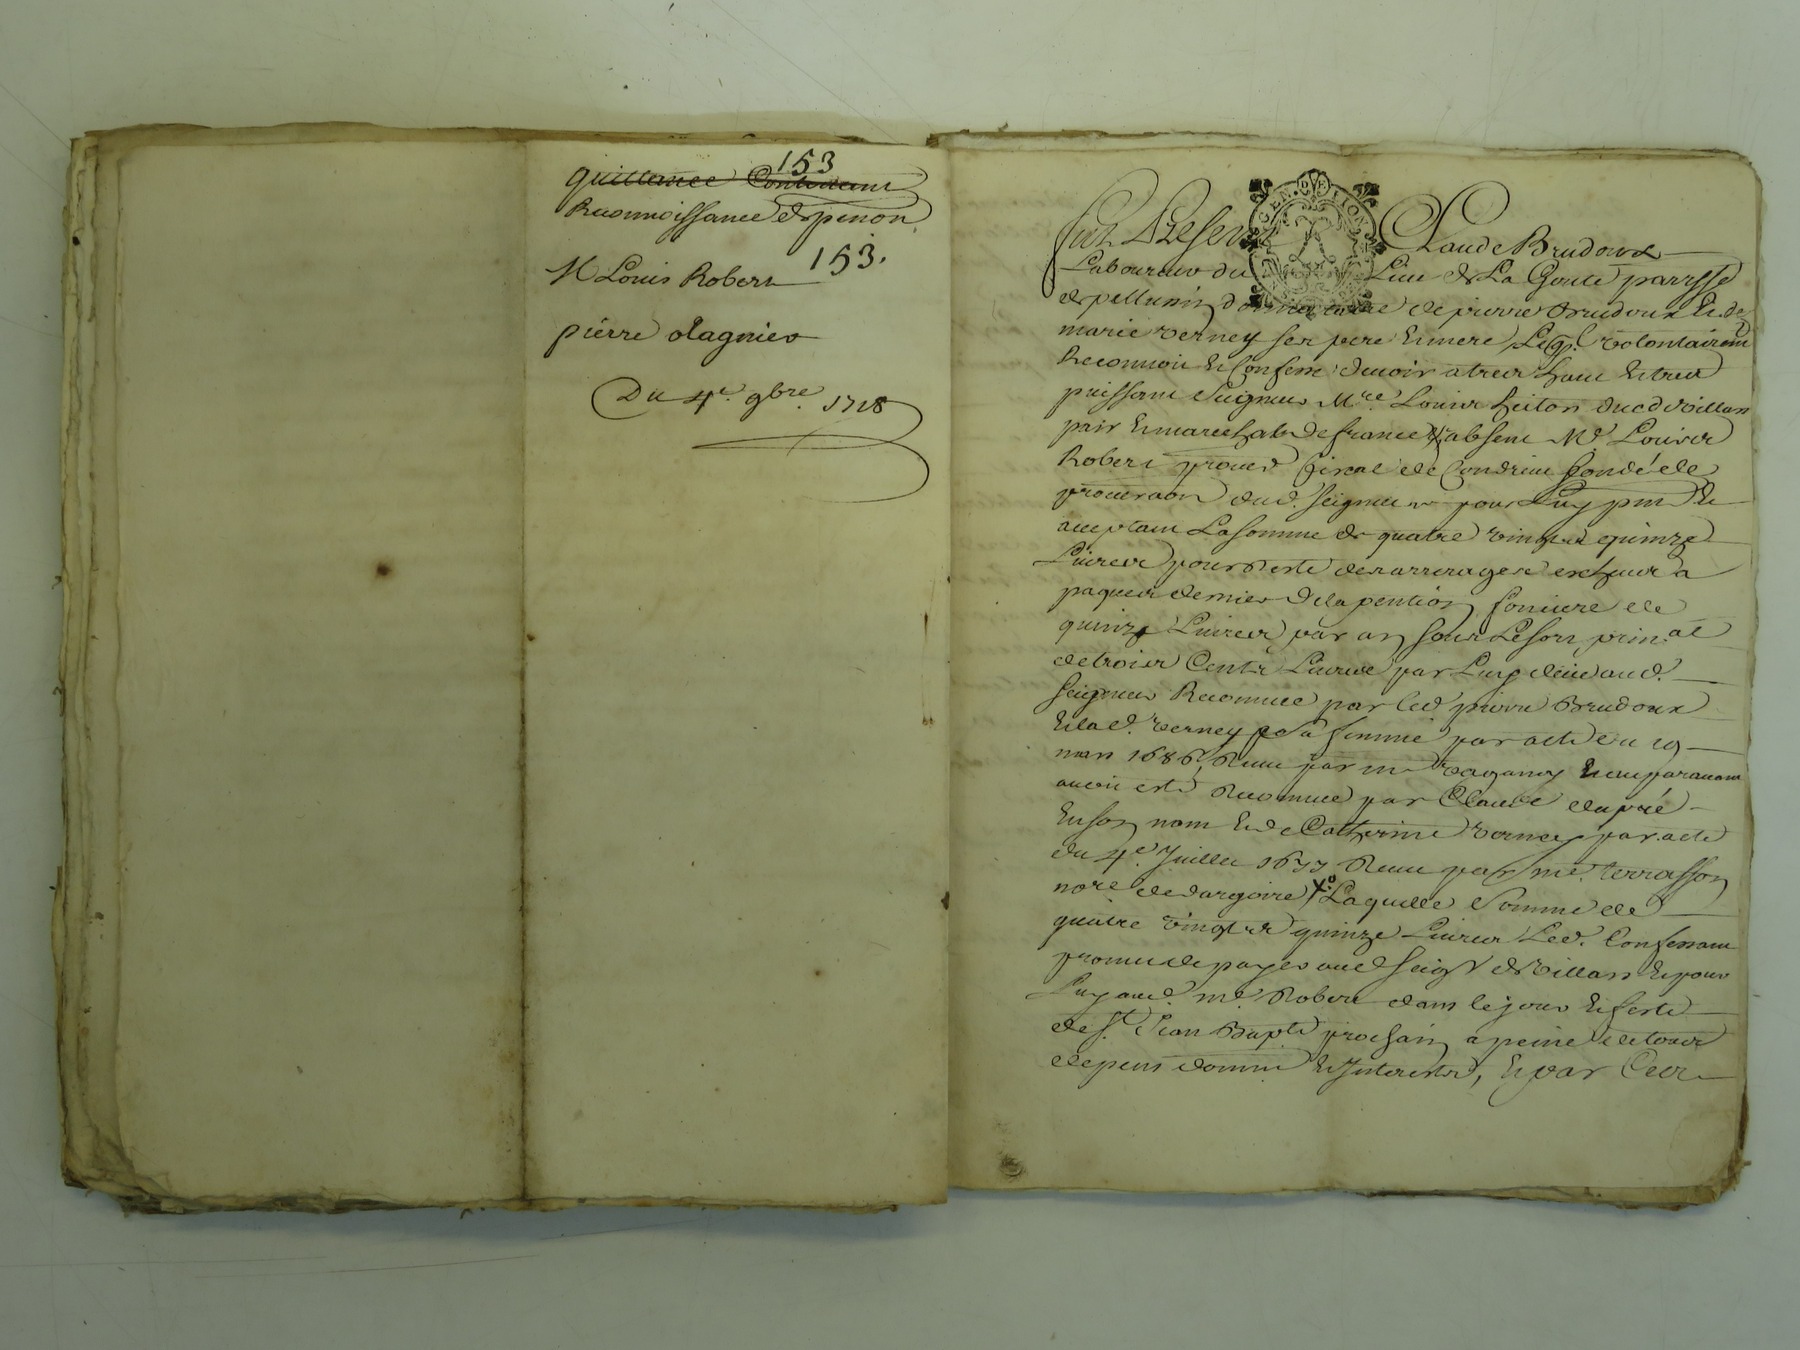 153
quittance Contenant
Reconnoissance de pension
153.
Mr Louis Robert
pierre olagnier
Du 4e. 9bre. 1718
GEN. DE LION
fut Present Claude Brudoux
Laboureur du Lieu de La Goute parisse
de pellusin donnataire de pierre Brudoux Et de
marie verney ses pere Et mere, Leql. volontairemt
Reconnoit Et Confesse devoir a tres haut Et tres
puissant Seigneur Mre. Louis hector duc de villars
pair Et marechal de france absent Me. Louis
Robert procur fiscal de Condrieu fondé de
procuraon dud. seigneur pour Luy pnt Et
acceptant La somme de quatre vingts quinze
Livres pour Reste des arrerages escheus a
paques dernier de la pention fonciere de
quinze Livres par an sous Le sort prin.al
de trois Cents Livres par Luy deüe aud.
seigneur Reconnue par led pierre Brudoux
Et lad. verney sa femme par acte du 19
mars 1686, Receu par me Et auparavant
avoit esté Reconnue par Claude dupré
En son nom Et de Catherine verney par acte
du 4e. Juillet 1633 Receu par me. terrasson
nore de dargoire Laquelle Somme de
quatre vingts quinze Livres Led. Confessant
promet de payer aud seigr de villars Et pour
Luy aud. me. Robert dans le jour Et feste
de St. Jean Bapte prochain a peine de tous
depens domm Et Interests, Et par Ces